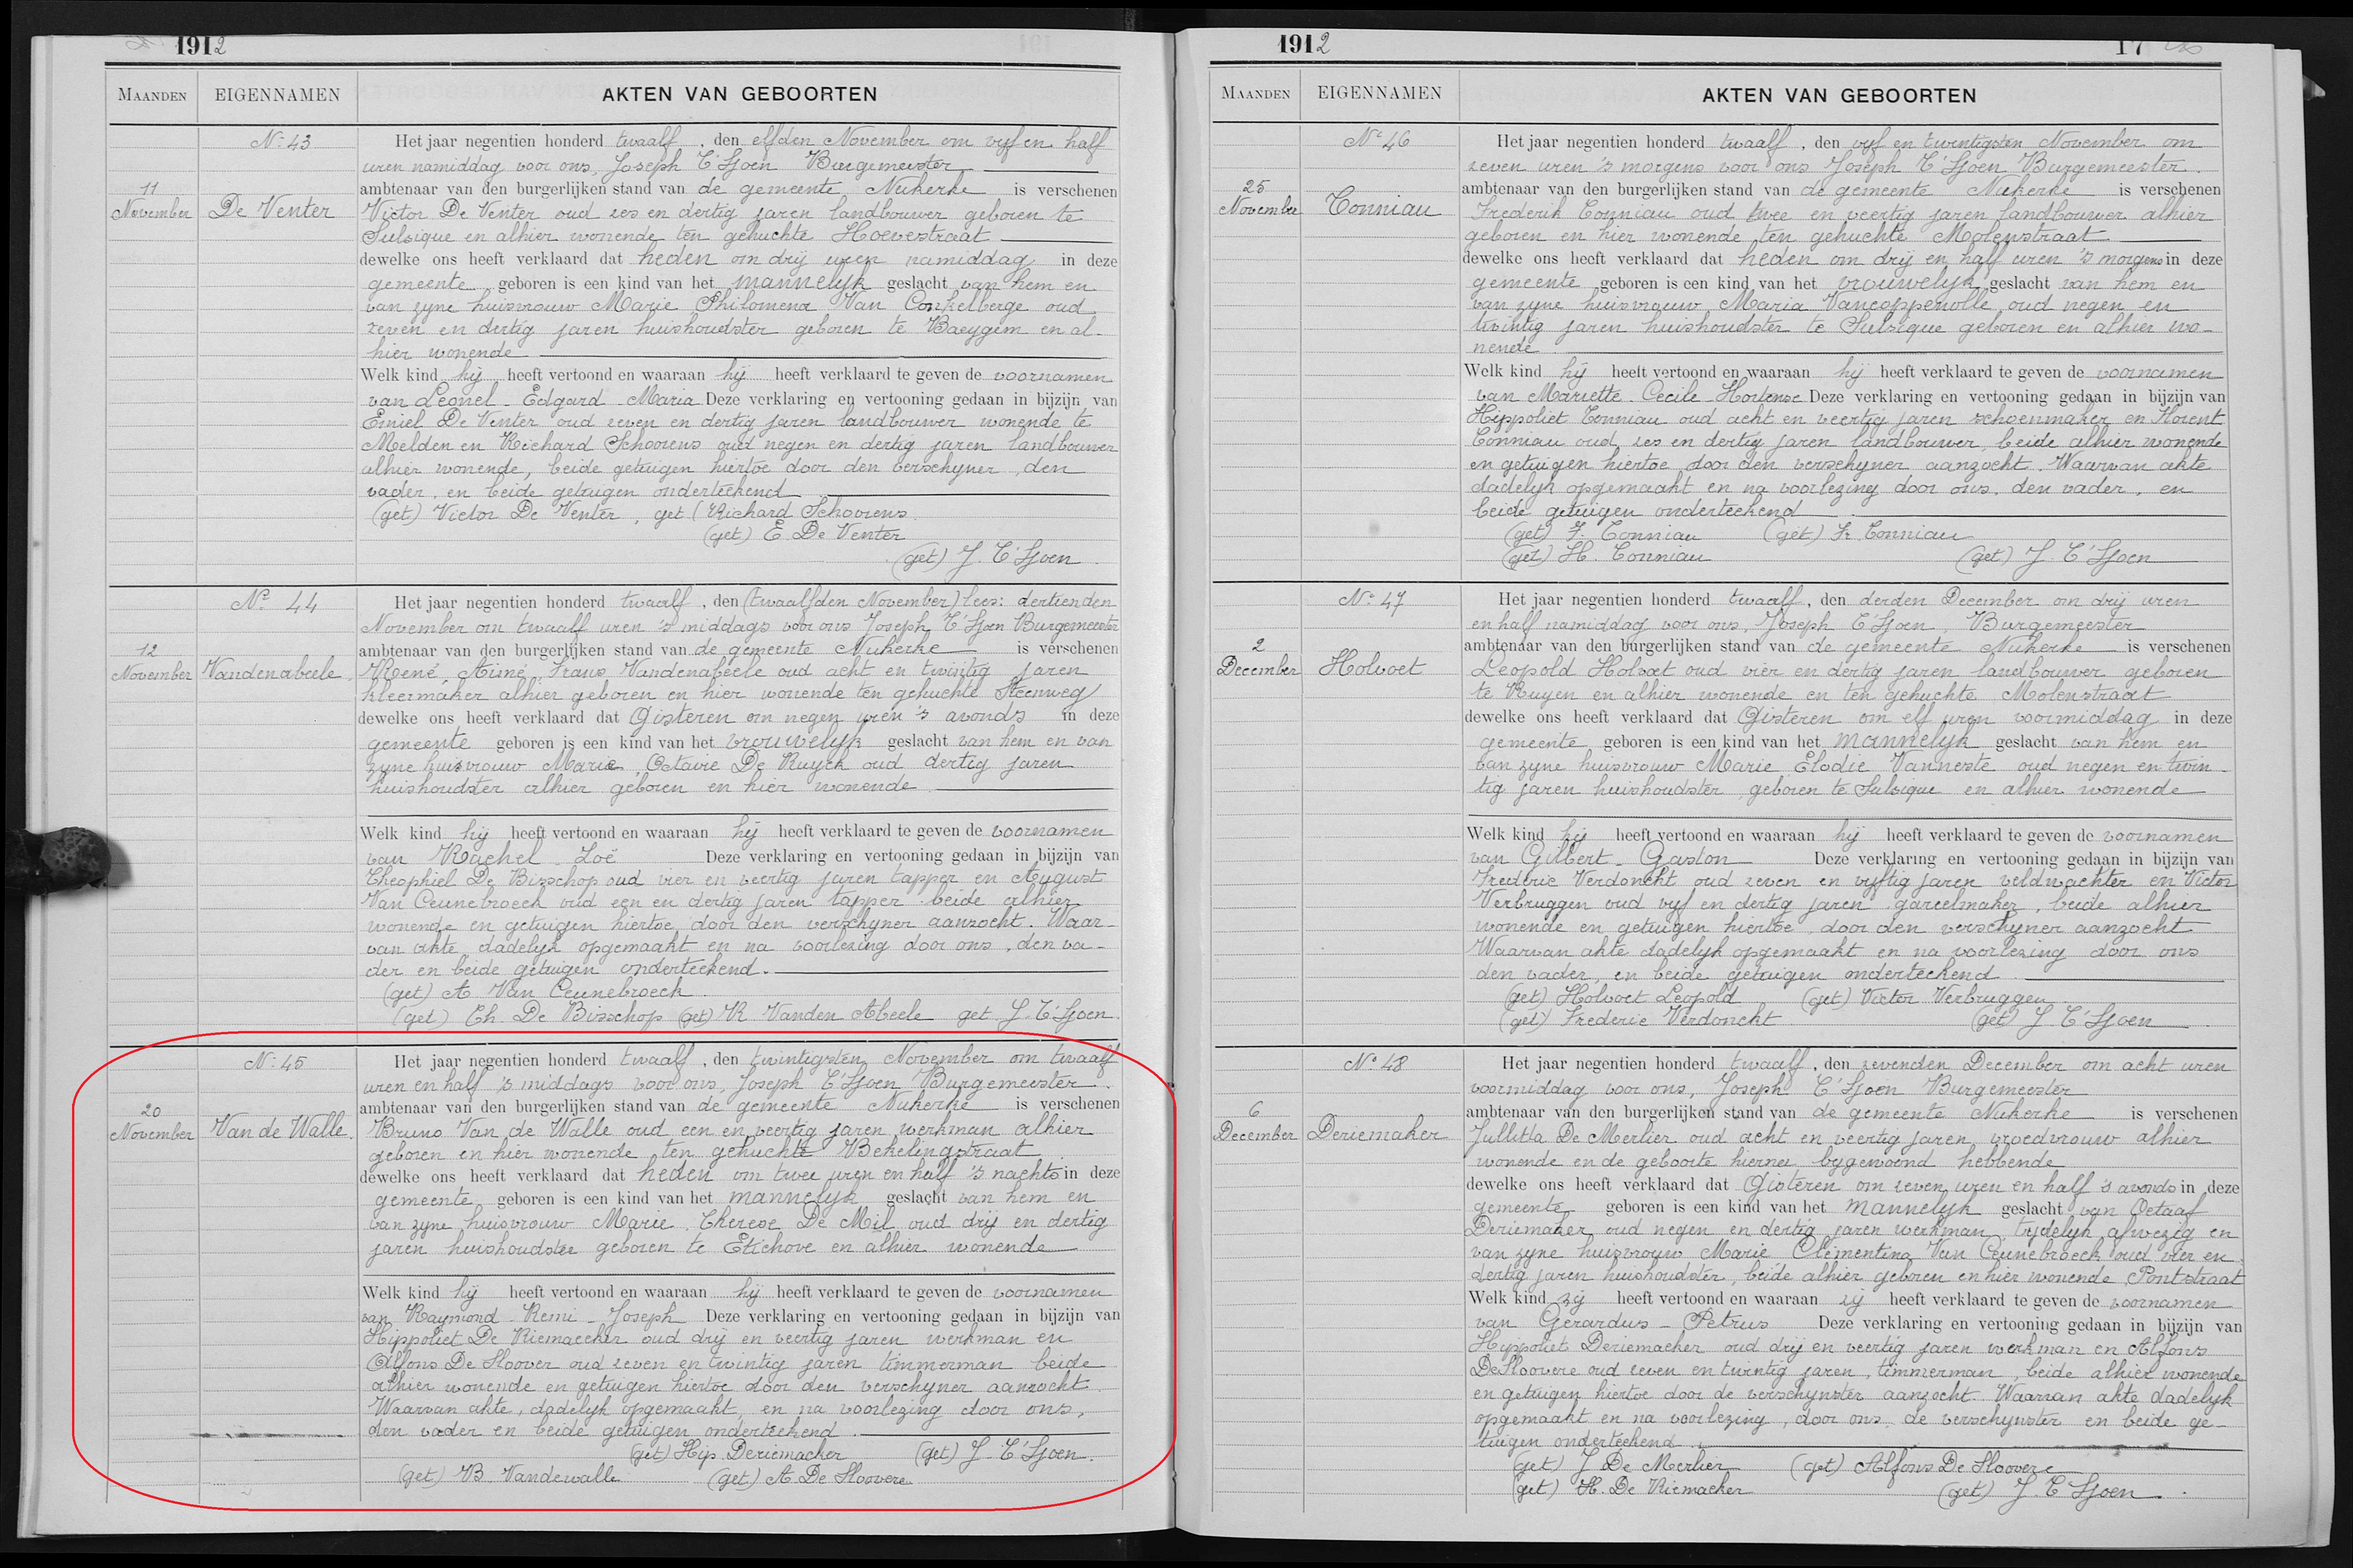 1912
MAANDEN EIGENNAMEN AKTEN VAN GEBOORTEN
N: 43 Het jaar negentien honderd twaalf, den elfden November om vijf en half
uren namiddag voor ons, Joseph T'Sjoen Burgemeester
ambtenaar van den burgerlijken stand van de gemeente Nukerke is verschenen
11 November De Venter Victor De Venter oud zes en dertig jaren landbouwer geboren te
Sulsique en alhier wonende ten gehuchte Hoevestraat
dewelke ons heeft verklaard dat heden om drij uren namiddag in deze
gemeente geboren is een kind van het mannelijk geslacht van hem en
van zyne huisvrouw Marie Philomena Van Conkelberge oud
zeven en dertig jaren huishoudster geboren te Baeygem en al-
hier wonende
Welk kind hij heeft vertoond en waaraan hij heeft verklaard te geven de voornamen
van Leonel - Edgard - Maria Deze verklaring en vertooning gedaan in bijzijn van
Emiel De Venter oud zeven en dertig jaren landbouwer wonende te
Melden en Richard Schoorens oud negen en dertig jaren landbouwer
alhier wonende, beide getuigen hiertoe door den verschyner, den
vader, en beide getuigen onderteekend
(get) Victor De Venter, get (Richard Schoorens
(get) E. De Venter
(get) J. T'Sjoen
N° 44 Het jaar negentien honderd twaalf, den (twaalfden November) lees: dertienden
November om twaalf uren 's middags voor ons Joseph T'Sjoen Burgemeester
ambtenaar van den burgerlijken stand van de gemeente Nukerke is verschenen
12 November Vandenabeele René, Aimé, Frans Vandenabeele oud acht en twintig jaren
kleermaker alhier geboren en hier wonende ten gehuchte Steenweg
dewelke ons heeft verklaard dat Gisteren om negen uren 's avonds in deze
gemeente geboren is een kind van het vrouwelijk geslacht van hem en van
zyne huisvrouw Marie, Octavie De Ruyck oud dertig jaren
huishoudster alhier geboren en hier wonende.
Welk kind hij heeft vertoond en waaraan hij heeft verklaard te geven de voornamen
van Rachel - Zoë Deze verklaring en vertooning gedaan in bijzijn van
Theophiel De Bisschop oud vier en veertig jaren tapper en August
Van Ceunebroeck oud een en dertig jaren tapper beide alhier
wonende en getuigen hiertoe door den verschyner aanzocht. Waar-
van akte, dadelijk opgemaakt en na voorlezing door ons, den va-
der en beide getuigen onderteekend.
(get) A Van Ceunebroeck
(get) Th. De Bisschop (get) R Vanden Abeele get J. T'Sjoen
N: 45 Het jaar negentien honderd twaalf, den twintigsten November om twaalf
uren en half 's middags voor ons, Joseph T'Sjoen Burgemeester.
ambtenaar van den burgerlijken stand van de gemeente Nukerke is verschenen
20 November Van de Walle. Bruno Van de Walle oud een en veertig jaren werkman alhier
geboren en hier wonende ten gehuchte Bekelingstraat
dewelke ons heeft verklaard dat heden om twee uren en half 's nachts in deze
gemeente geboren is een kind van het mannelyk geslacht van hem en
van zyne huisvrouw Marie. Therese De Mil oud drij en dertig
jaren huishoudster geboren te Etichove en alhier wonende
Welk kind hij heeft vertoond en waaraan hij heeft verklaard te geven de voornamen
van Raymond - Remi - Joseph Deze verklaring en vertooning gedaan in bijzijn van
Hippoliet De Riemaecker oud drij en veertig jaren werkman en
Alfons De Sloover oud zeven en twintig jaren timmerman beide
alhier wonende en getuigen hiertoe door den verschyner aanzocht.
Waarvan akte, dadelyk opgemaakt, en na voorlezing door ons,
den vader en beide getuigen onderteekend.
(get) Hip Deriemacker (get) J. T'Sjoen.
(get) B. Vandewalle (get) A De Sloovere
1912 17
MAANDEN EIGENNAMEN AKTEN VAN GEBOORTEN
N° 46 Het jaar negentien honderd twaalf, den vyf en twintigsten November om
zeven uren 's morgens voor ons Joseph T'Sjoen Burgemeester.
ambtenaar van den burgerlijken stand van de gemeente Nukerke is verschenen
25 November Tonniau Frederik Tonniau oud twee en veertig jaren landbouwer alhier
geboren en hier wonende ten gehuchte Molenstraat
dewelke ons heeft verklaard dat heden om drij en half uren 's morgens in deze
gemeente geboren is een kind van het vrouwelyk geslacht van hem en
van zyne huisvrouw Maria Vancoppenolle oud negen en
twintig jaren huishoudster te Sulsique geboren en alhier wo-
nende
Welk kind hij heeft vertoond en waaraan hij heeft verklaard te geven de voornamen
van Mariette - Cecile - Hortense Deze verklaring en vertooning gedaan in bijzijn van
Hippoliet Tonniau oud acht en veertig jaren schoenmaker en Florent
Tonniau oud zes en dertig jaren landbouwer, beide alhier wonende
en getuigen hiertoe door den verschyner aanzocht. Waarvan akte
dadelyk opgemaakt en na voorlezing door ons, den vader, en
beide getuigen onderteekend
(get) F. Tonniau (get) Fr. Tonniau
(get) H. Tonniau (get) J. T'Sjoen
N° 47 Het jaar negentien honderd twaalf, den derden December om drij uren
en half namiddag voor ons, Joseph T'Sjoen, Burgemeester
ambtenaar van den burgerlijken stand van de gemeente Nukerke is verschenen
2 December Holvoet Leopold Holvoet oud vier en dertig jaren landbouwer geboren
te Ruyen en alhier wonende en ten gehuchte Molenstraat
dewelke ons heeft verklaard dat Gisteren om elf uren voormiddag in deze
gemeente geboren is een kind van het mannelyk geslacht van hem en
van zyne huisvrouw Marie Elodie Vanneste oud negen en twin-
tig jaren huishoudster geboren te Sulsique en alhier wonende
Welk kind hij heeft vertoond en waaraan hij heeft verklaard te geven de voornamen
van Gilbert - Gaston Deze verklaring en vertooning gedaan in bijzijn van
Frederic Verdonckt oud zeven en vyftig jaren veldwachter en Victor
Verbruggen oud vyf en dertig jaren gareelmaker, beide alhier
wonende en getuigen hiertoe door den verschyner aanzocht
Waarvan akte dadelyk opgemaakt en na voorlezing door ons
den vader, en beide getuigen onderteekend
(get) Holvoet Leopold (get) Victor Verbruggen
(get) Frederic Verdonckt (get) J T'Sjoen
N° 48 Het jaar negentien honderd twaalf, den zevenden December om acht uren
voormiddag voor ons, Joseph T'Sjoen Burgemeester
ambtenaar van den burgerlijken stand van de gemeente Nukerke is verschenen
6 December Deriemaker Jullitta De Merlier oud acht en veertig jaren, vroedvrouw alhier
wonende en de geboorte hiernei bygewoond hebbende
dewelke ons heeft verklaard dat Gisteren om zeven uren en half 's avonds in deze
gemeente geboren is een kind van het mannelyk geslacht van Octaaf
Deriemaker oud negen en dertig jaren werkman, tydelyk afwezig en
van zyne huisvrouw Marie Clementina Van Ceunebroeck oud vier en
dertig jaren huishoudster, beide alhier geboren en hier wonende Pontstraat
Welk kind zij heeft vertoond en waaraan zij heeft verklaard te geven de voornamen
van Gerardus - Petrus Deze verklaring en vertooning gedaan in bijzijn van
Hippoliet Deriemacher oud drij en veertig jaren werkman en Alfons
De Sloovere oud zeven en twintig jaren, timmerman, beide alhier wonende
en getuigen hiertoe door de verschynster aanzocht. Waarvan akte dadelyk
opgemaakt en na voorlezing, door ons, de verschynster en beide ge-
tuigen onderteekend.
(get) J De Merlier (get) Alfons De Sloovere
(get) H. De Riemacker (get) J. T'Sjoen.